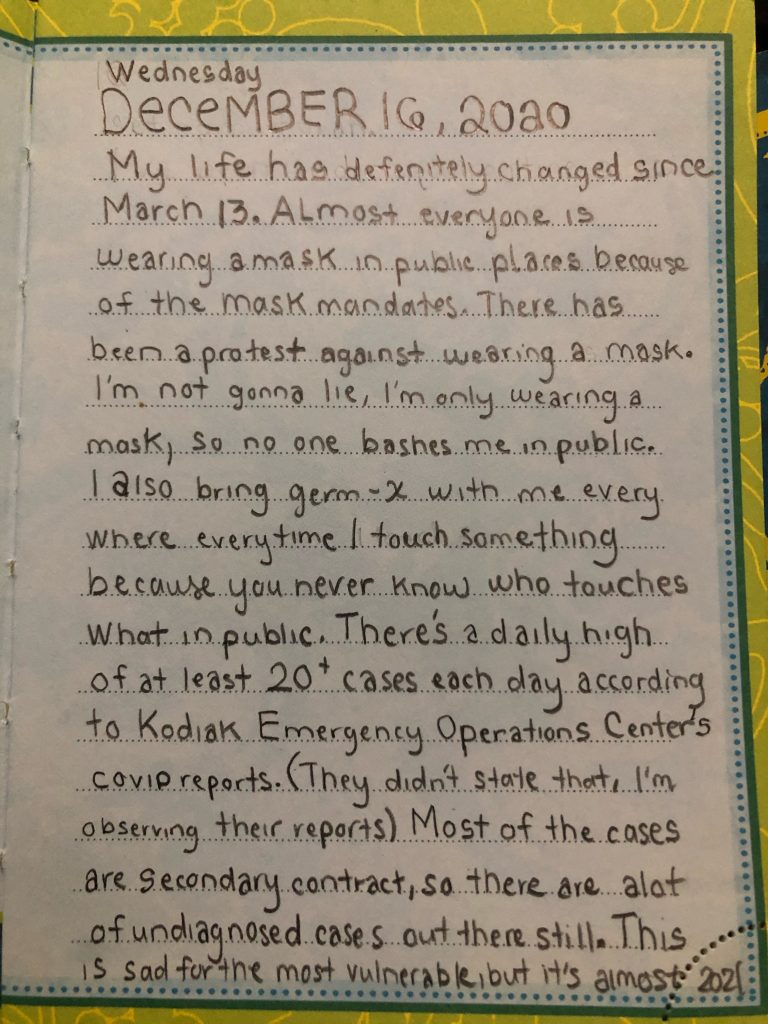 Wednesday
DeceMBER 16, 2020
My life has defenitely changed since
March 13. Almost everyone is
wearing a mask in public places because
of the mask mandates. There has
been a protest against wearing a mask.
I'm not gonna lie, I'm only wearing a
mask, so no one bashes me in public.
I also bring germ-x with me every
where everytime I touch something
because you never know who touches
what in public. There's a daily high
of at least 20+ cases each day according
to Kodiak Emergency Operations Center's
COVID reports. (They didn't state that, I'm
observing their reports) Most of the cases
are secondary contract, so there are alot
of undiagnosed cases out there still. This
is sad for the most vulnerable, but it's almost 2021